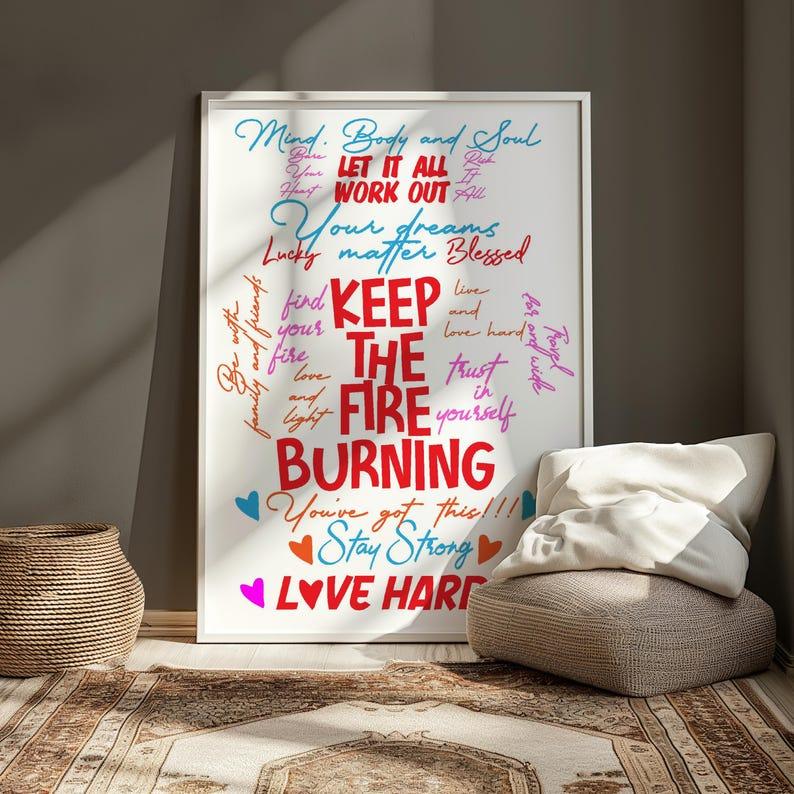 Mind, Body and Soul
Bare
Your
Heart
LET IT ALL
WORK OUT
Risk
It
All
Your dreams
matter
Lucky
Blessed
Be with
family and friends
find
your
fire
love
and
light
KEEP
THE
FIRE
BURNING
live
and
love hard
trust
in
yourself
Travel
far and wide
You've got this!!!
Stay Strong
LOVE HARD